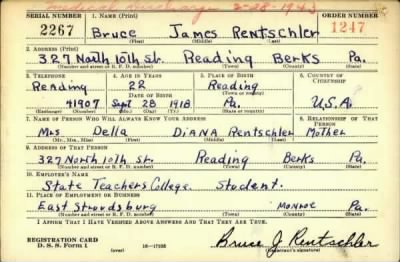 Medical Discharge 2-28-1943
SERIAL NUMBER 1. NAME (Print) ORDER NUMBER
2267 Bruce James Rentschler 1247
(First) (Middle) (Last)
2. ADDRESS (Print)
327 North 10th St. Reading Berks Pa.
(Number and street or R. F. D. number) (Town) (County) (State)
3. TELEPHONE 4. AGE IN YEARS 5. PLACE OF BIRTH 6. COUNTRY OF CITIZENSHIP
Reading 22 Reading
DATE OF BIRTH (Town or county)
41907 Sept 28 1918 Pa. U.S.A.
(Exchange) (Number) (Mo.) (Day) (Yr.) (State or country)
7. NAME OF PERSON WHO WILL ALWAYS KNOW YOUR ADDRESS 8. RELATIONSHIP OF THAT PERSON
Mrs Della Diana Rentschler Mother
(Mr., Mrs., Miss) (First) (Middle) (Last)
9. ADDRESS OF THAT PERSON
327 North 10th St. Reading Berks Pa.
(Number and street or R. F. D. number) (Town) (County) (State)
10. EMPLOYER'S NAME
State Teachers College. Student.
11. PLACE OF EMPLOYMENT OR BUSINESS
East Stroudsburg Monroe Pa.
(Number and street or R. F. D. number) (Town) (County) (State)
I AFFIRM THAT I HAVE VERIFIED ABOVE ANSWERS AND THAT THEY ARE TRUE.
REGISTRATION CARD
D. S. S. Form 1 (over) 16—17105 Bruce J. Rentschler
(Registrant's signature)